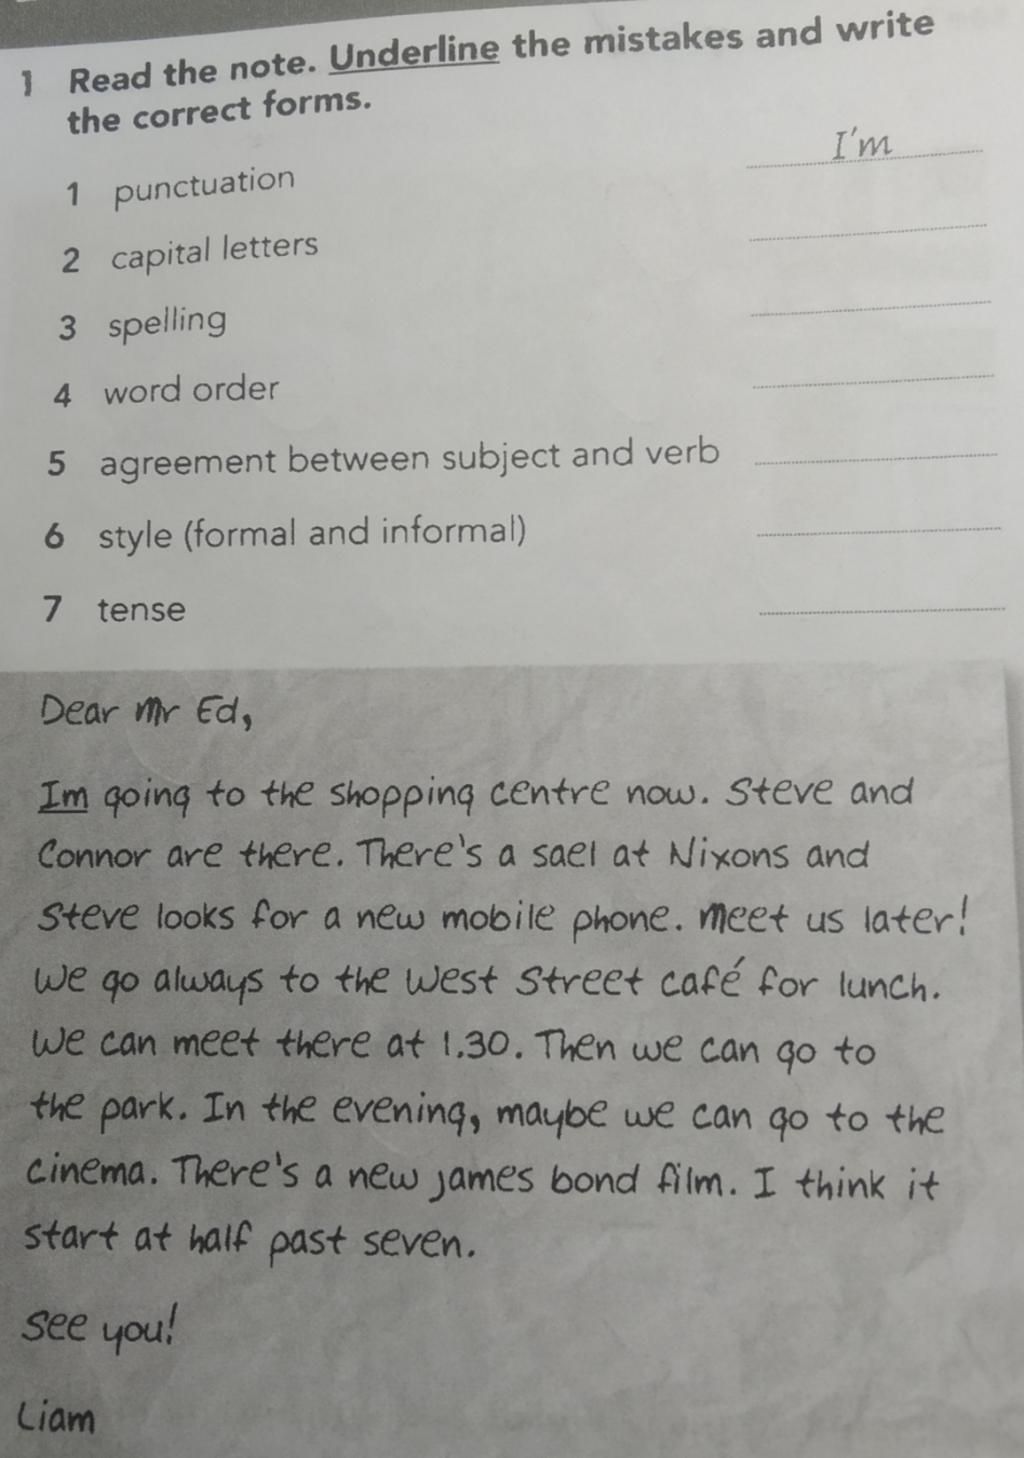 1 Read the note. Underline the mistakes and write
the correct forms.
1 punctuation I'm
2 capital letters
3 spelling
4 word order
5 agreement between subject and verb
6 style (formal and informal)
7 tense
Dear Mr Ed,
Im going to the shopping centre now. Steve and
Connor are there. There's a sael at Nixons and
Steve looks for a new mobile phone. Meet us later!
We go always to the West Street café for lunch.
We can meet there at 1.30. Then we can go to
the park. In the evening, maybe we can go to the
cinema. There's a new james bond film. I think it
start at half past seven.
See you!
Liam